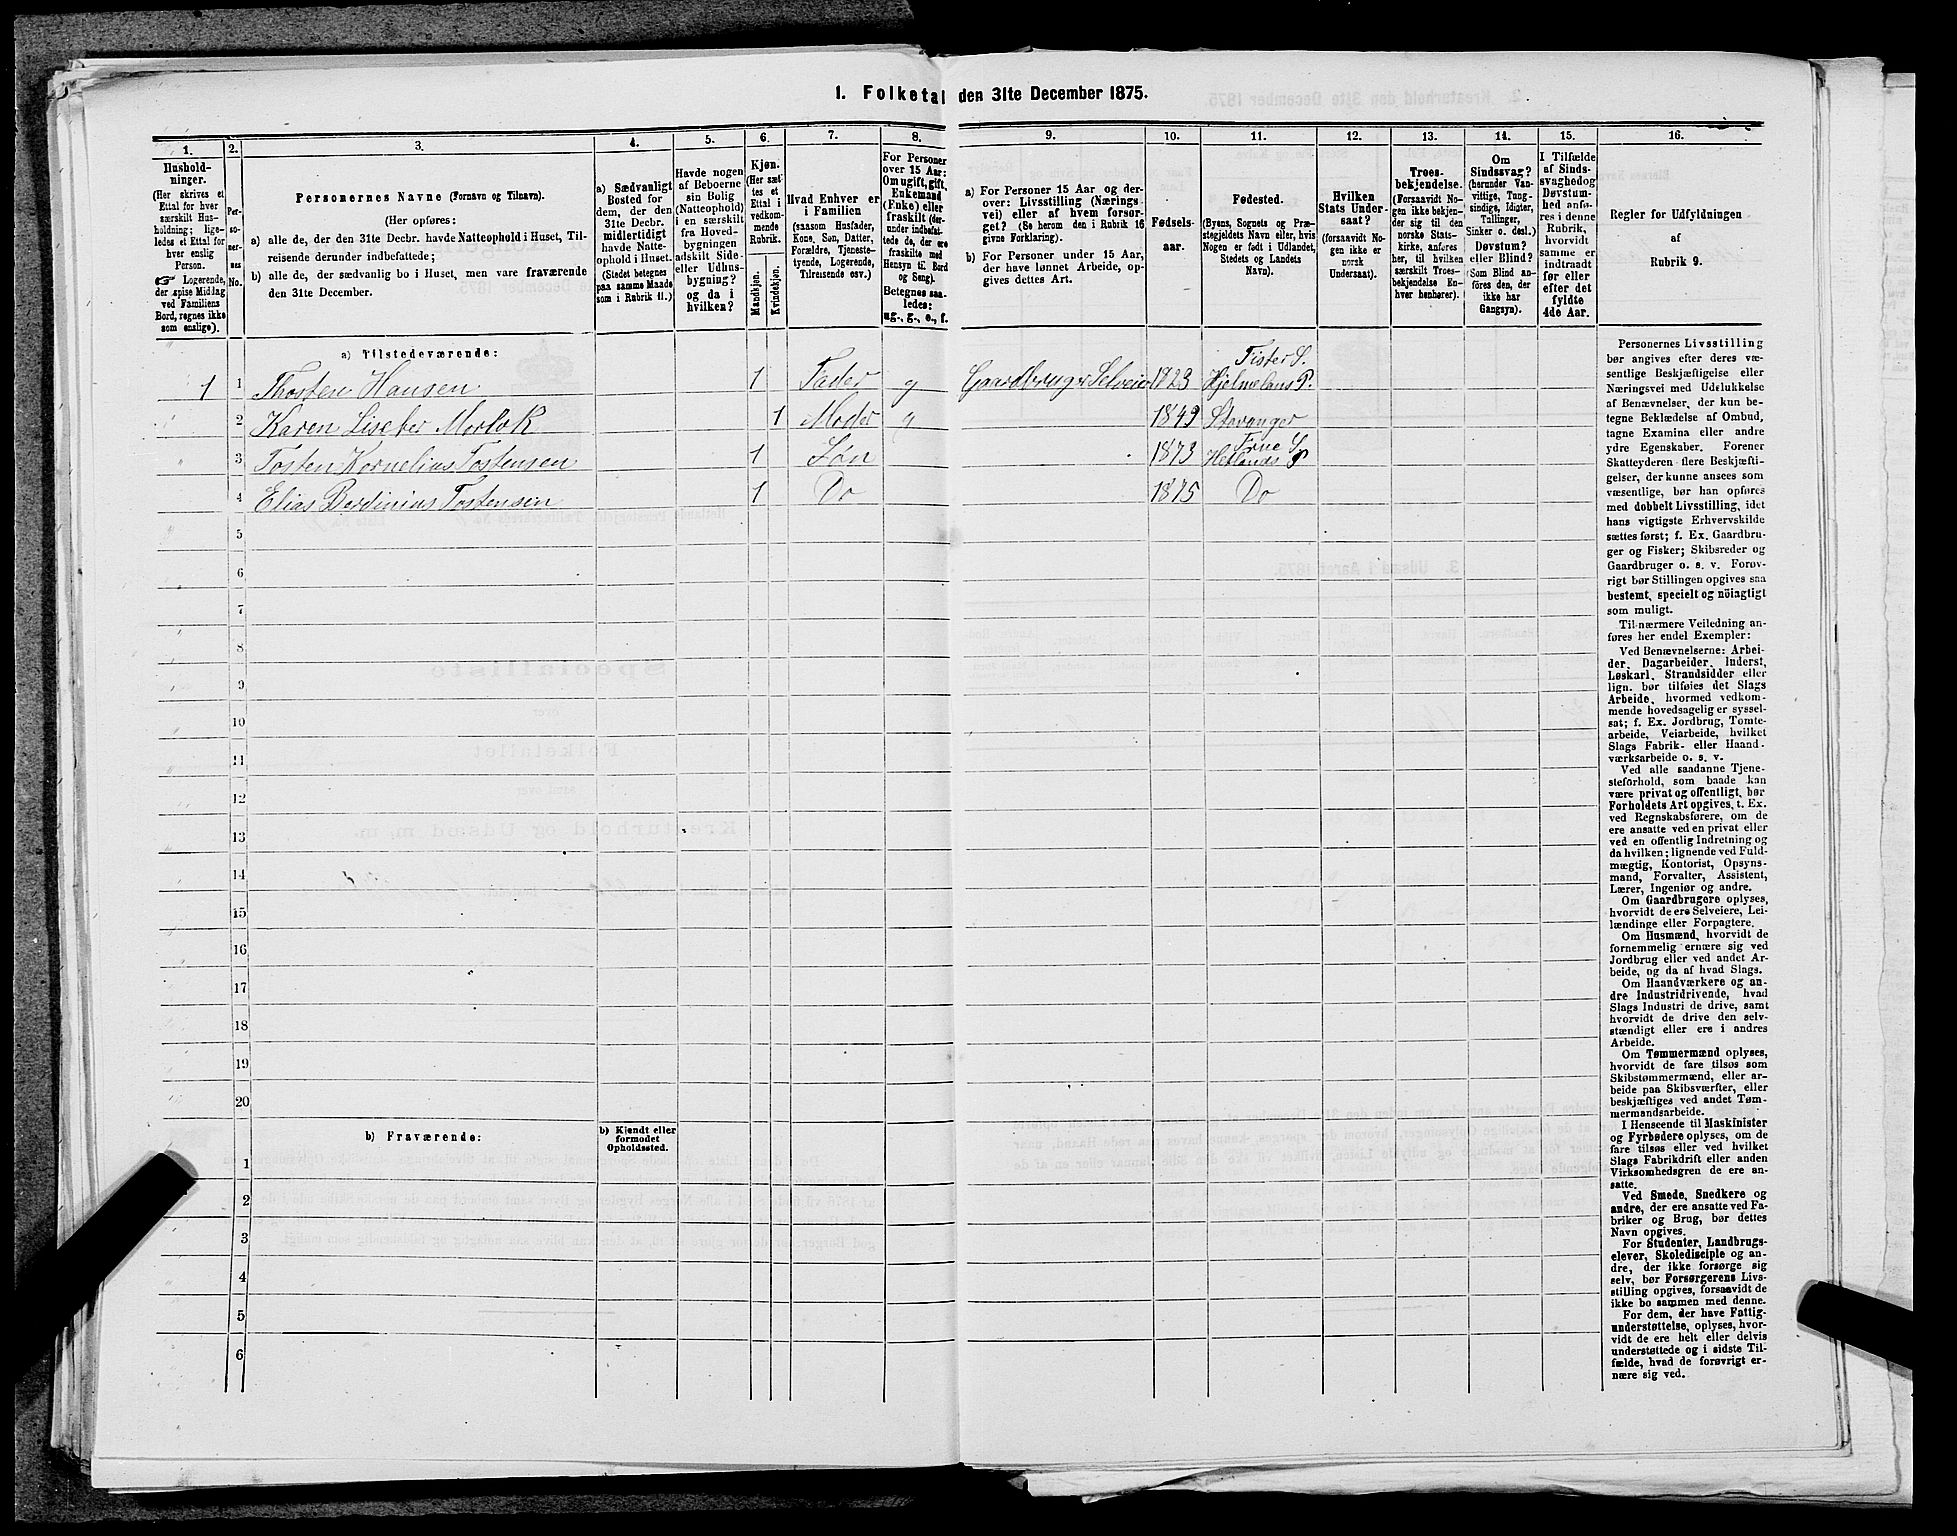 1. Folketal den 31te December 1875.
1.
Hushold-
ninger.
(Her skrives et
Ettal for hver
særskilt Hus-
holdning; lige-
ledes et Ettal for
hver enslig
Person.
☞ Logerende,
der spise Middag
ved Familiens
Bord, regnes ikke
som enslige).
2.
Per-
so-
ner-
nes
No.
3.
Personernes Navne (Fornavn og Tilnavn).
(Her opføres:
a) alle de, der den 31te Decbr. havde Natteophold i Huset, Til-
reisende derunder indbefattede;
b) alle de, der sædvanlig bo i Huset, men vare fraværende
den 31te December.
4.
a) Sædvanligt
Bosted for
dem, der den
31te Decbr.
midlertidigt
havde Natte-
ophold i Huset.
(Stedet betegnes
paa samme Maade
som i Rubrik 11.)
5.
Havde nogen
af Beboerne
sin Bolig
(Natteophold)
i en særskilt
fra Hoved-
bygningen
adskilt Side-
eller Udhus-
bygning?
og da i
hvilken?
6.
Kjøn.
(Her sæt-
tes et
Ettal i
vedkom-
mende
Rubrik.
Mandkjøn.
Kvindekjøn.
7.
Hvad Enhver er
i Familien
(saasom Husfader,
Kone, Søn, Datter,
Forældre, Tjeneste-
tyende, Logerende,
Tilreisende osv.)
8.
For Personer
over 15 Aar:
Om ugift, gift,
Enkemand
(Enke) eller
fraskilt (der-
under indbefat-
tede de, der ere
fraskilte med
Hensyn til Bord
og Seng).
Betegnes saa-
ledes:
ug., g., e., f.
9.
a) For Personer 15 Aar og der-
over: Livsstilling (Nærings-
vei) eller af hvem forsør-
get? (Se herom den i Rubrik 16
givne Forklaring).
b) For Personer under 15 Aar,
der have lønnet Arbeide, op-
gives dettes Art.
10.
Fødsels-
aar.
11.
Fødested.
(Byens, Sognets og Præ-
stegjeldets Navn eller, hvis
Nogen er født i Udlandet,
Stedets og Landets
Navn).
12.
Hvilken
Stats Under-
saat?
(forsaavidt No-
gen ikke er
norsk
Undersaat).
13.
Troes-
bekjendelse.
(Forsaavidt No-
gen ikke bekjen-
der sig til den
norske Stats-
kirke, anføres
her, til hvilken
særskilt Troes-
bekjendelse En-
hver henhører).
14.
Om
Sindssvag?
(herunder Van-
vittige, Tung-
sindige, Idioter,
Tullinger,
Sinker o. desl.)
Døvstum?
eller Blind?
(Som Blind an-
føres den, der
ikke har
Gangsyn).
15.
I Tilfælde
af Sinds-
svaghed og
Døvstum-
hed anfø-
res i denne
Rubrik,
hvorvidt
samme er
indtraadt
før eller
efter det
fyldte
4de Aar.
16.
Regler for Udfyldningen
af
Rubrik 9.
a) Tilstedeværende:
1 1 Thosten Hansen 1 Fader g Gaardbruger Selveier 1823 Tister S.
Hjelmelans P.
2 Karen Lisebet Morlok 1 Moder g 1849 Stavanger
3 Tosten Kornelius Tostensen 1 Søn 1873 Frue S
Hetlands P
4 Elias Berdinius Tostensen 1 Do 1875 Do
5
6
7
8
9
10
11
12
13
14
15
16
17
18
19
20
b) Fraværende:
b) Kjendt eller
formodet
Opholdssted.
1
2
3
4
5
6
Personernes Livsstilling
bør angives efter deres væ-
sentlige Beskjæftigelse eller
Næringsvei med Udelukkelse
af Benævnelser, der kun be-
tegne Beklædelse af Ombud,
tagne Examina eller andre
ydre Egenskaber. Forener
Skatteyderen flere Beskjæfti-
gelser, der kunne ansees som
væsentlige, bør han opføres
med dobbelt Livsstilling, idet
hans vigtigste Erhvervskilde
sættes først; f. Ex. Gaardbru-
ger og Fisker; Skibsreder og
Gaardbruger o. s. v. Forøv-
rigt bør Stillingen opgives saa
bestemt, specielt og nöiagtigt
som muligt.
Til nærmere Veiledning an-
føres her endel Exempler:
Ved Benævnelserne: Arbei-
der, Dagarbeider, Inderst,
Løskarl, Strandsidder eller
lign. bør tilføies det Slags
Arbeide, hvormed vedkom-
mende hovedsagelig er syssel-
sat; f. Ex. Jordbrug, Tomte-
arbeide, Veiarbeide, hvilket
Slags Fabrik- eller Haand-
værksarbeide o. s. v.
Ved alle saadanne Tjene-
steforhold, som baade kan
være privat og offentligt, bør
Forholdets Art opgives, t. Ex.
ved Regnskabsførere, om de
ere ansatte ved en privat eller
ved en offentlig Indretning og
da hvilken; lignende ved Fuld-
mægtig, Kontorist, Opsyns-
mand, Forvalter, Assistent,
Lærer, Ingeniør og andre.
Om Gaardbrugere oplyses,
hvorvidt de ere Selveiere, Lei-
lændinge eller Forpagtere.
Om Husmænd, hvorvidt de
fornemmelig ernære sig ved
Jordbrug eller ved andet Ar-
beide, og da af hvad Slags.
Om Haandværkere og an-
dre Industridrivende, hvad
Slags Industri de drive, samt
hvorvidt de drive den selv-
stændigt eller ere i andres
Arbeide.
Om Tømmermænd oplyses,
hvorvidt de fare tilsøs som
Skibstømmermænd, eller ar-
beide paa Skibsværfter, eller
beskjæftiges ved andet Tøm-
mermandsarbeide.
I Henseende til Maskinister
og Fyrbødere oplyses, om de
fare tilsøs eller ved hvilket
Slags Fabrikdrift eller anden
Virksomhedsgren de ere an-
satte.
Ved Smede, Snedkere og
andre, der ere ansatte ved Fa-
briker og Brug, bør dettes
Navn opgives.
For Studenter, Landbrugs-
elever, Skoledisciple og an-
dre, der ikke forsørge sig
selv, bør Forsørgerens Livs-
stilling opgives, forsaavidt de
ikke bo sammen med denne.
For dem, der have Fattig-
understøttelse, oplyses, hvor-
vidt de ere helt eller delvis
understøttede og i sidste Til-
fælde, hvad de forøvrigt er-
nære sig ved.